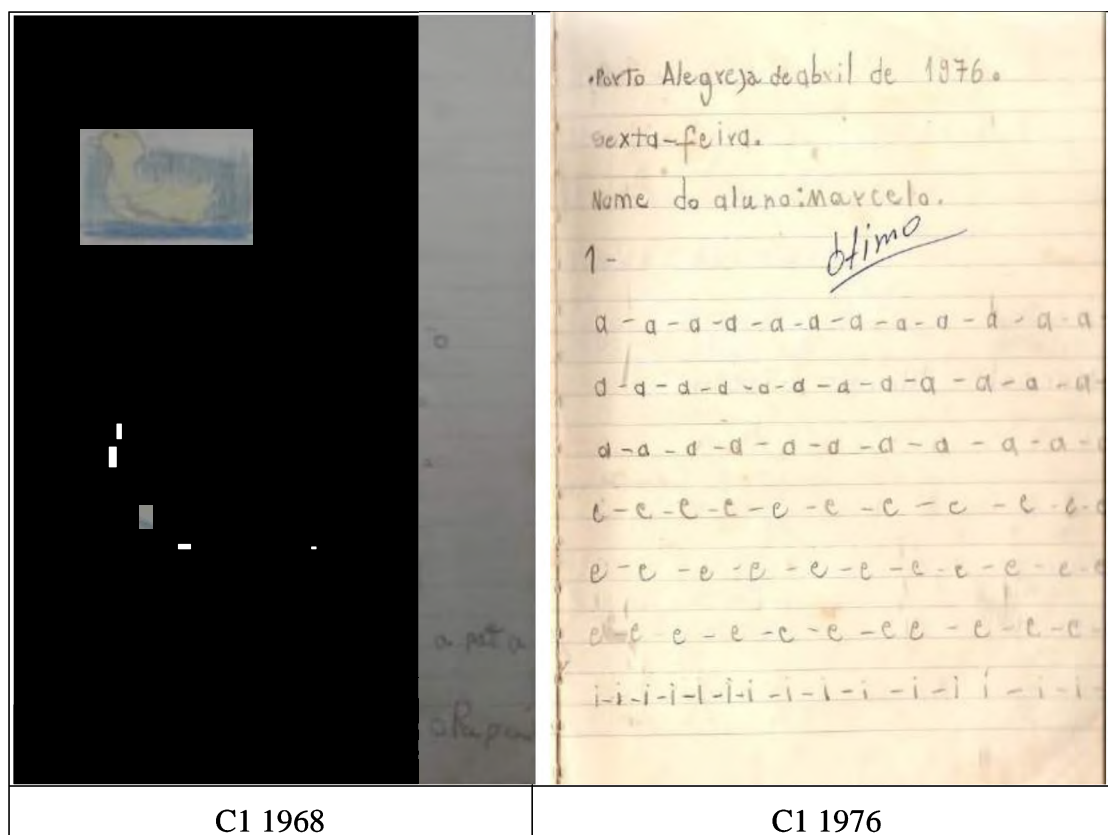 a pata
.Porto Alegre,2 de abril de 1976.
sexta-feira.
Nome do aluno:Marcelo.
1-
ótimo
a-a-a-a-a-a-a-a-a-a-a-a
a-a-a-a-a-a-a-a-a-a-a-a-
a-a-a-a-a-a-a-a-a-a-a-
e-e-e-e-e-e-e-e-e-e-e-
e-e-e-e-e-e-e-e-e-e-e-e
e-e e-e-e-e-e e-e-e-e-
i-i-i-i-i-i-i-i-i-i-i-i i-i-i-
C1 1968
C1 1976